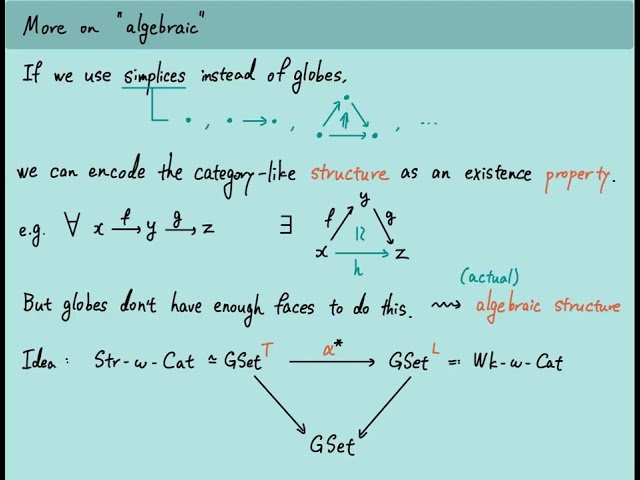 More on "algebraic"
If we use simplices instead of globes,
, , , ...
we can encode the category-like structure as an existence property.
e.g. ∀ x f→ y g→ z ∃ x f y g z ≅ h
(actual)
But globes don't have enough faces to do this. ⇝ algebraic structure
Idea : Str-ω-Cat ≃ GSet^T α* → GSet^L =: Wk-ω-Cat
GSet